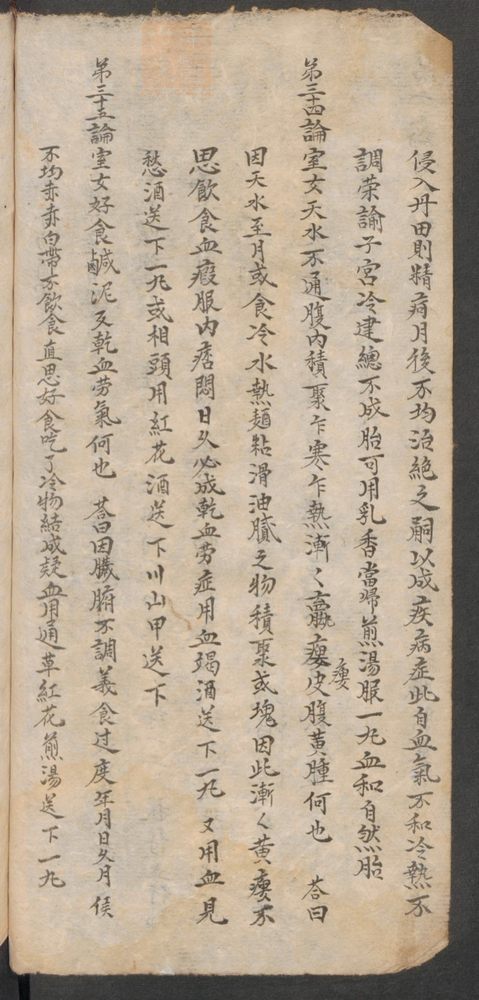 侵入丹田則精病月後不均治絕之嗣以成疾病症此自血氣不和冷熱不
調荣論子宮冷建總不成胎可用乳香當帰煎湯服一丸血和自然胎
第三十四論室女天水不通腹內積聚乍寒乍熱漸〻羸瘦皮腹黃腫何也　荅曰
瘦
因天水至月或食冷水熱麺粘滑油膩之物積聚或塊因此漸〻黃瘦不
思飲食血瘕服內痞悶日久必成乾血劳症用血竭酒送下一丸　又用血見
愁酒送下一丸或相頭用紅花酒送下川山甲送下
第三十五論室女好食鹹泥及乾血劳氣何也　荅曰因臟腑不調義食过度年月日久月候
不均赤赤白帶不飲食直思好食吃了冷物結成疑血用通草紅花煎湯送下一丸